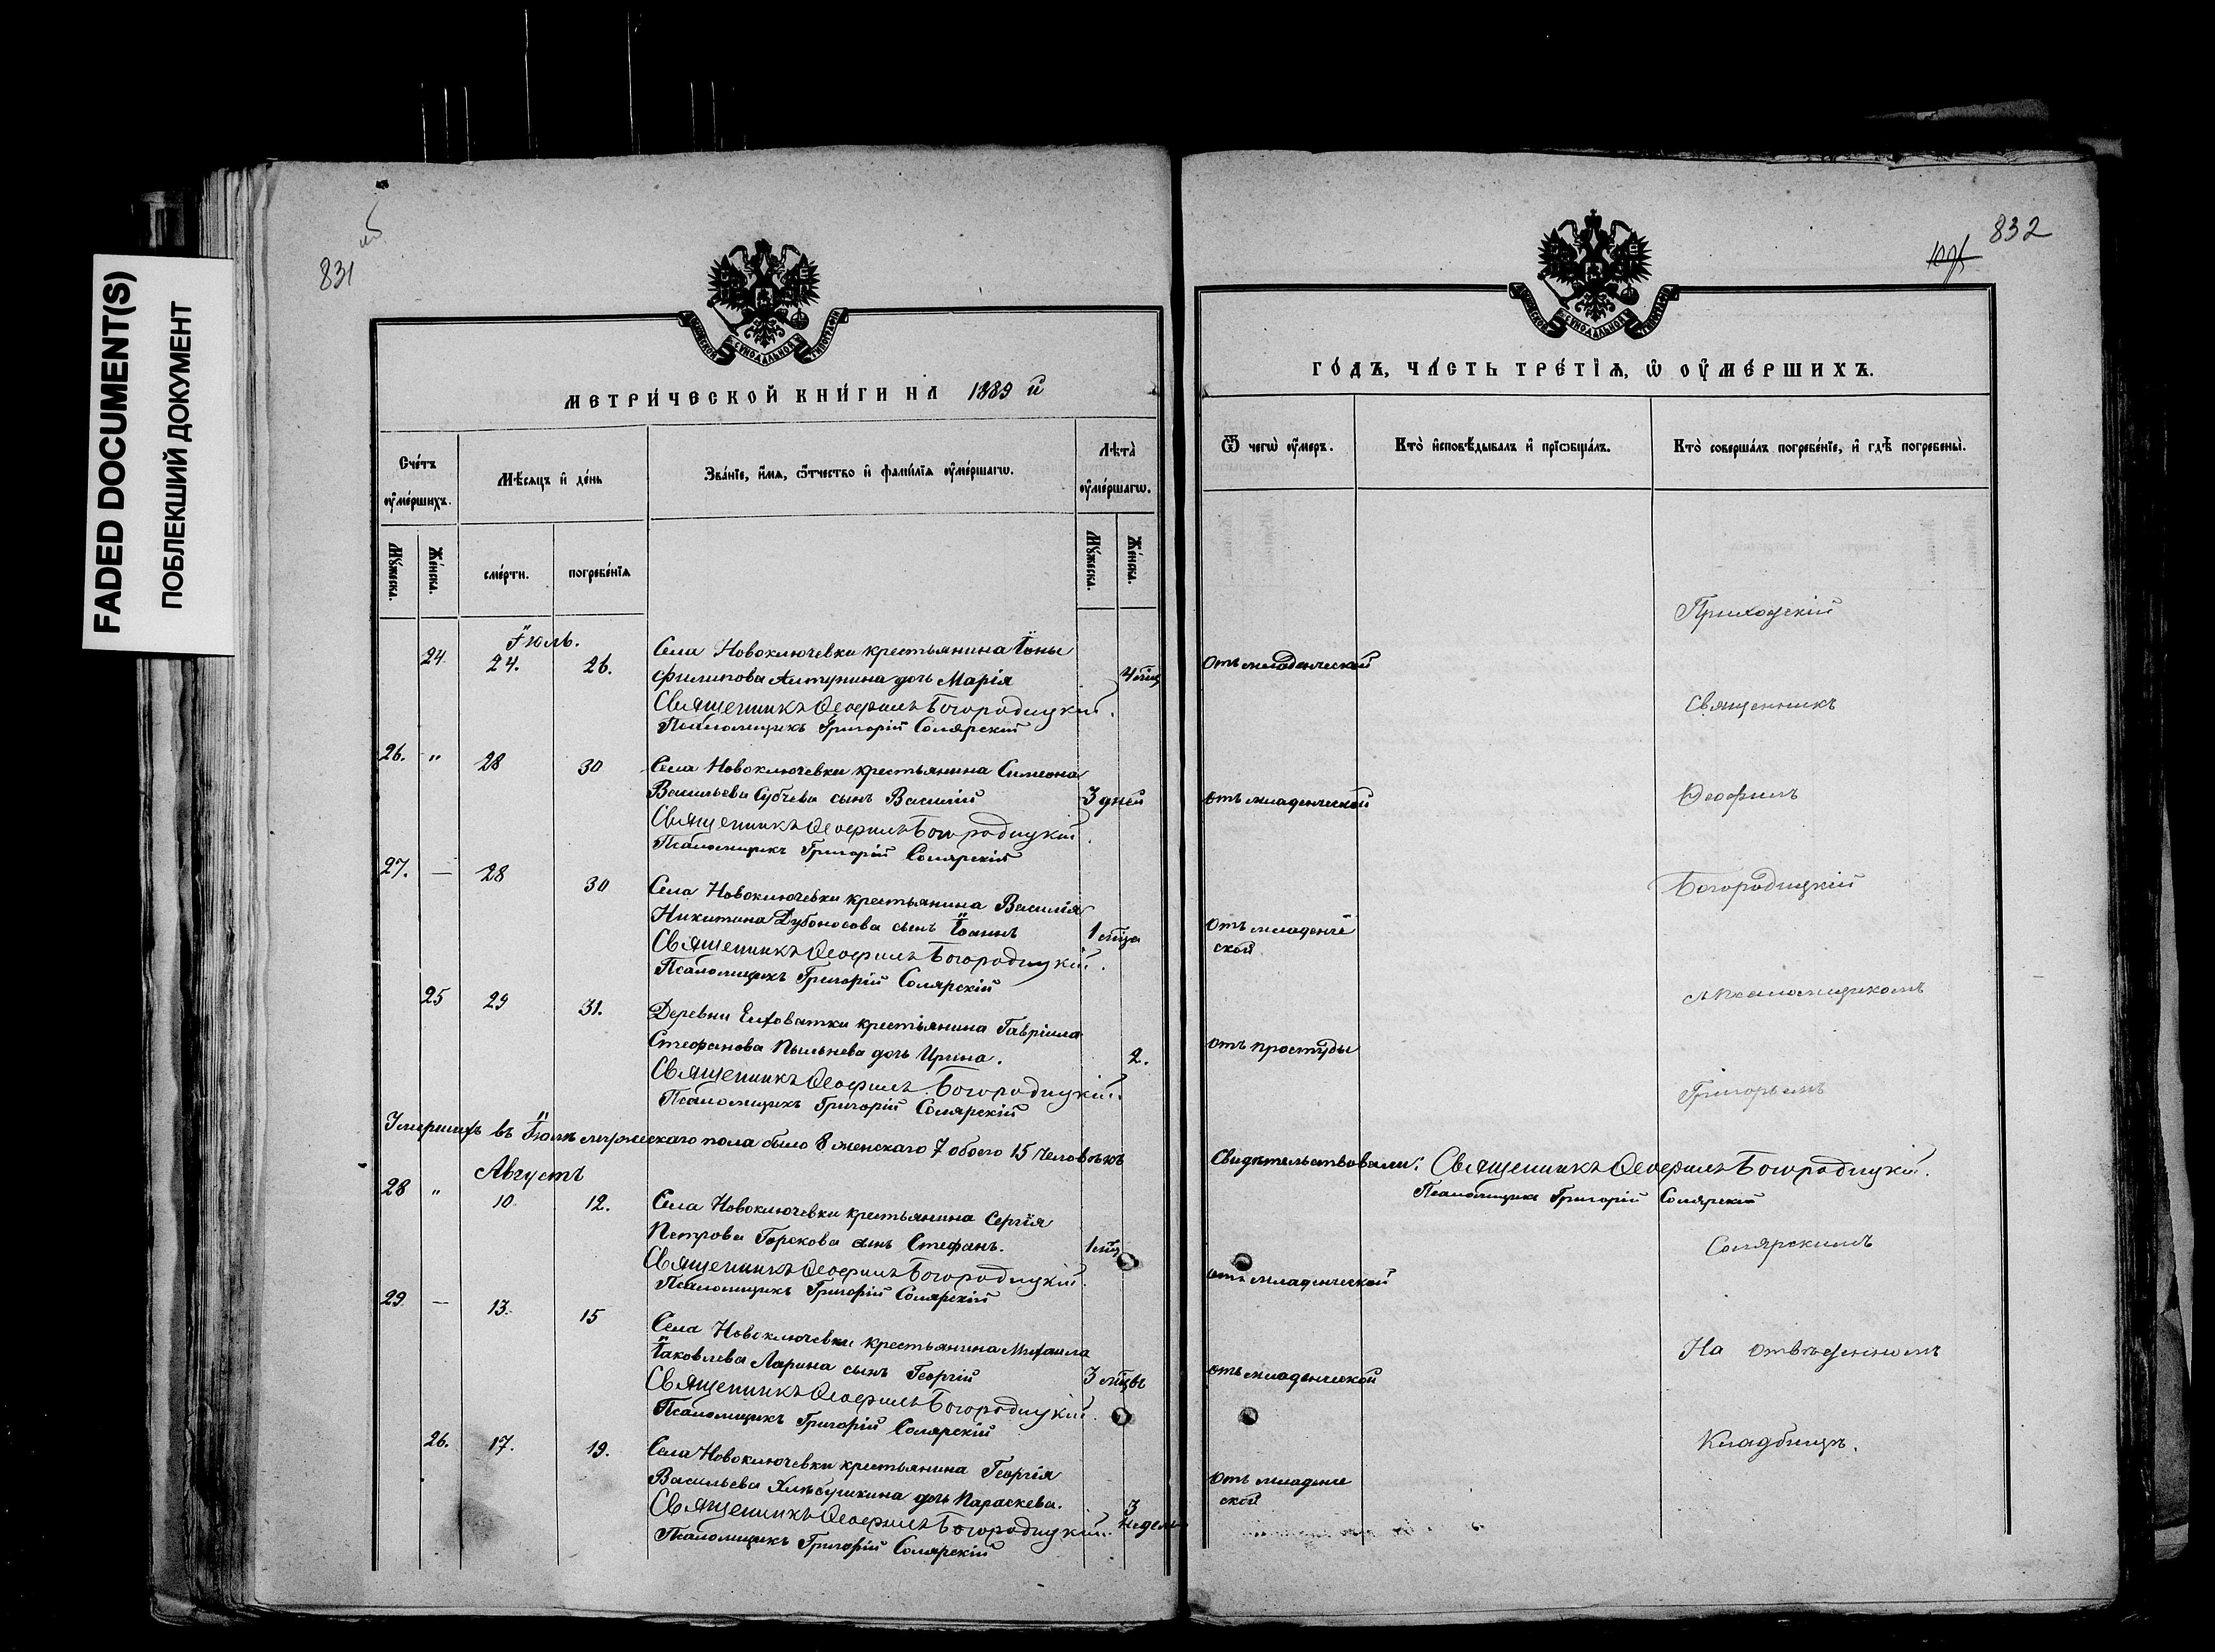 FADED DOCUMENT(S)
ПОБЛЕКШИЙ ДОКУМЕНТ
831
МЕТРИ́ЧЕСКОЙ КНИ́ГИ НА 1889 й
Сче́тъ ᲂу҆ме́ршихъ.
Мѣ́сяцъ и҆ де́нь
Зва́нїе, и҆́мѧ, ѻ҆́тчество и҆ фами́лїѧ ᲂу҆ме́ршагѡ.
Лѣ́та̀ ᲂу҆ме́ршагѡ.
Мꙋ́жеска.
Же́нска.
сме́рти.
погребе́нїѧ
Мꙋ́жеска.
Же́нска.
Іюль.
24 24. 26. Села Новоключевки крестьянина Іоны
Филипова дочь Марія 4 мѣц
Священникъ Ѳеофилъ Богородицкій.
Псаломщикъ Григорій Солярскій
26. " 28 30 Села Новоключевки крестьянина Симеона
Васильева Субчева сынъ Василій 3 дней
Священникъ Ѳеофилъ Богородицкій.
Псаломщикъ Григорій Солярскій
27. — 28 30 Села Новоключевки крестьянина Василія
Никитина Дубоносова сынъ Іоаннъ 1 мѣца
Священникъ Ѳеофилъ Богородицкій.
Псаломщикъ Григорій Солярскій
25 29 31. Деревни Елховатки крестьянина Гавріила
Стефанова Пыльнева дочь Ирина. 2.
Священникъ Ѳеофилъ Богородицкій.
Псаломщикъ Григорій Солярскій
Умершихъ въ Іюлѣ мужескаго пола было 8 женскаго 7 обоего 15 человѣкъ
Августъ
28 " 10 12. Села Новоключевки крестьянина Сергія
Петрова Горскова сынъ Стефанъ. 1 мѣц
Священникъ Ѳеофилъ Богородицкій.
Псаломщикъ Григорій Солярскій
29 — 13. 15 Села Новоключевки крестьянина Михаила
Іаковлева Ларина сынъ Георгій 3 мѣцвъ
Священникъ Ѳеофилъ Богородицкій.
Псаломщикъ Григорій Солярскій
26. 17. 19. Села Новоключевки крестьянина Георгія
Васильева Хлѣбушкина дочь Параскева. 3
Священникъ Ѳеофилъ Богородицкій. недель
Псаломщикъ Григорій Солярскій
832
ГО́ДЪ, ЧА́СТЬ ТРЕ́ТЇѦ, Ѡ҆ ОУ҆МЕ́РШИХЪ.
Ѿ чегѡ̀ ᲂу҆́меръ.
Кто̀ и҆сповѣ́дывалъ и҆ прїѡбща́лъ.
Кто̀ соверша́лъ погребе́нїе, и҆ гдѣ̀ погребены̀.
Приходскій
отъ младенческой
Священникъ
отъ младенческой
Ѳеофилъ
Богородицкій
отъ младенче
ской
съ псаломщикомъ
отъ простуды
Григорьемъ
Свидѣтельствовали: Священникъ Ѳеофилъ Богородицкій.
Псаломщикъ Григорій Солярскій
Солярскимъ
отъ младенческой
На отведенномъ
отъ младенческой
Кладбищѣ.
отъ младенче
ской